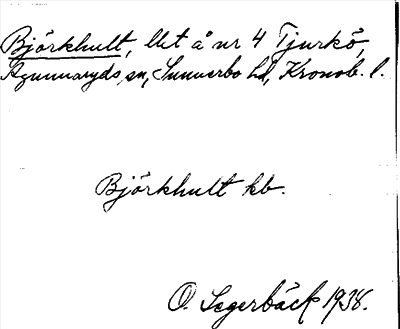 Björkhult, lht å nr 4 Tjurkö,
Agunnaryds sn, Sunnerbo hd, Kronob. l.
Björkhult kb.
O. Segerbäck 1938.